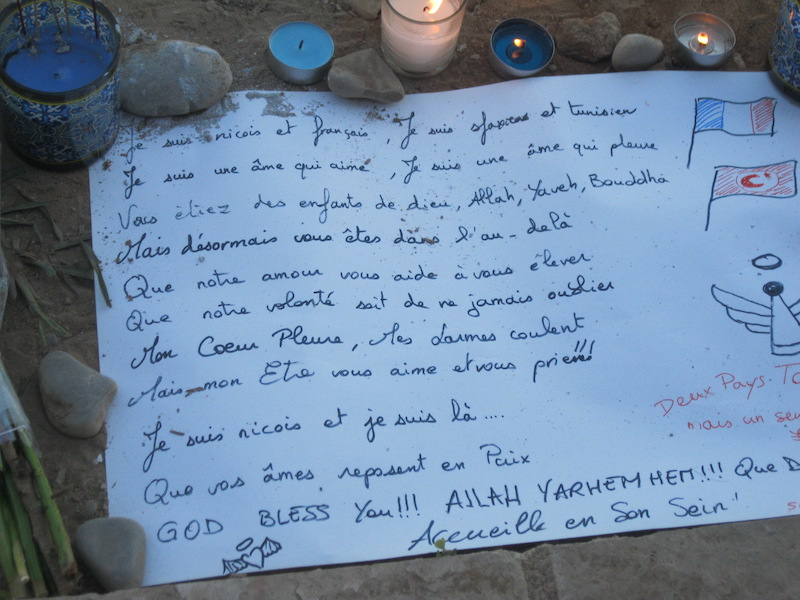 Je suis niçois et français, Je suis sfaxien et tunisien
Je suis une âme qui aime, Je suis une âme qui pleure
Vous étiez des enfants de dieu, Allah, Yaveh, Bouddha
Mais désormais vous êtes dans l'au-delà
Que notre amour vous aide à vous élever
Que notre volonté soit de ne jamais oublier
Mon Coeur Pleure, Mes larmes coulent
Mais mon Etre vous aime et vous prie!!!
Je suis niçois et je suis là....
Que vos âmes reposent en Paix
GOD BLESS You!!! ALLAH YARHEMHEM!!! Que D
Accueille en Son Sein!
Deux Pays
mais un seu